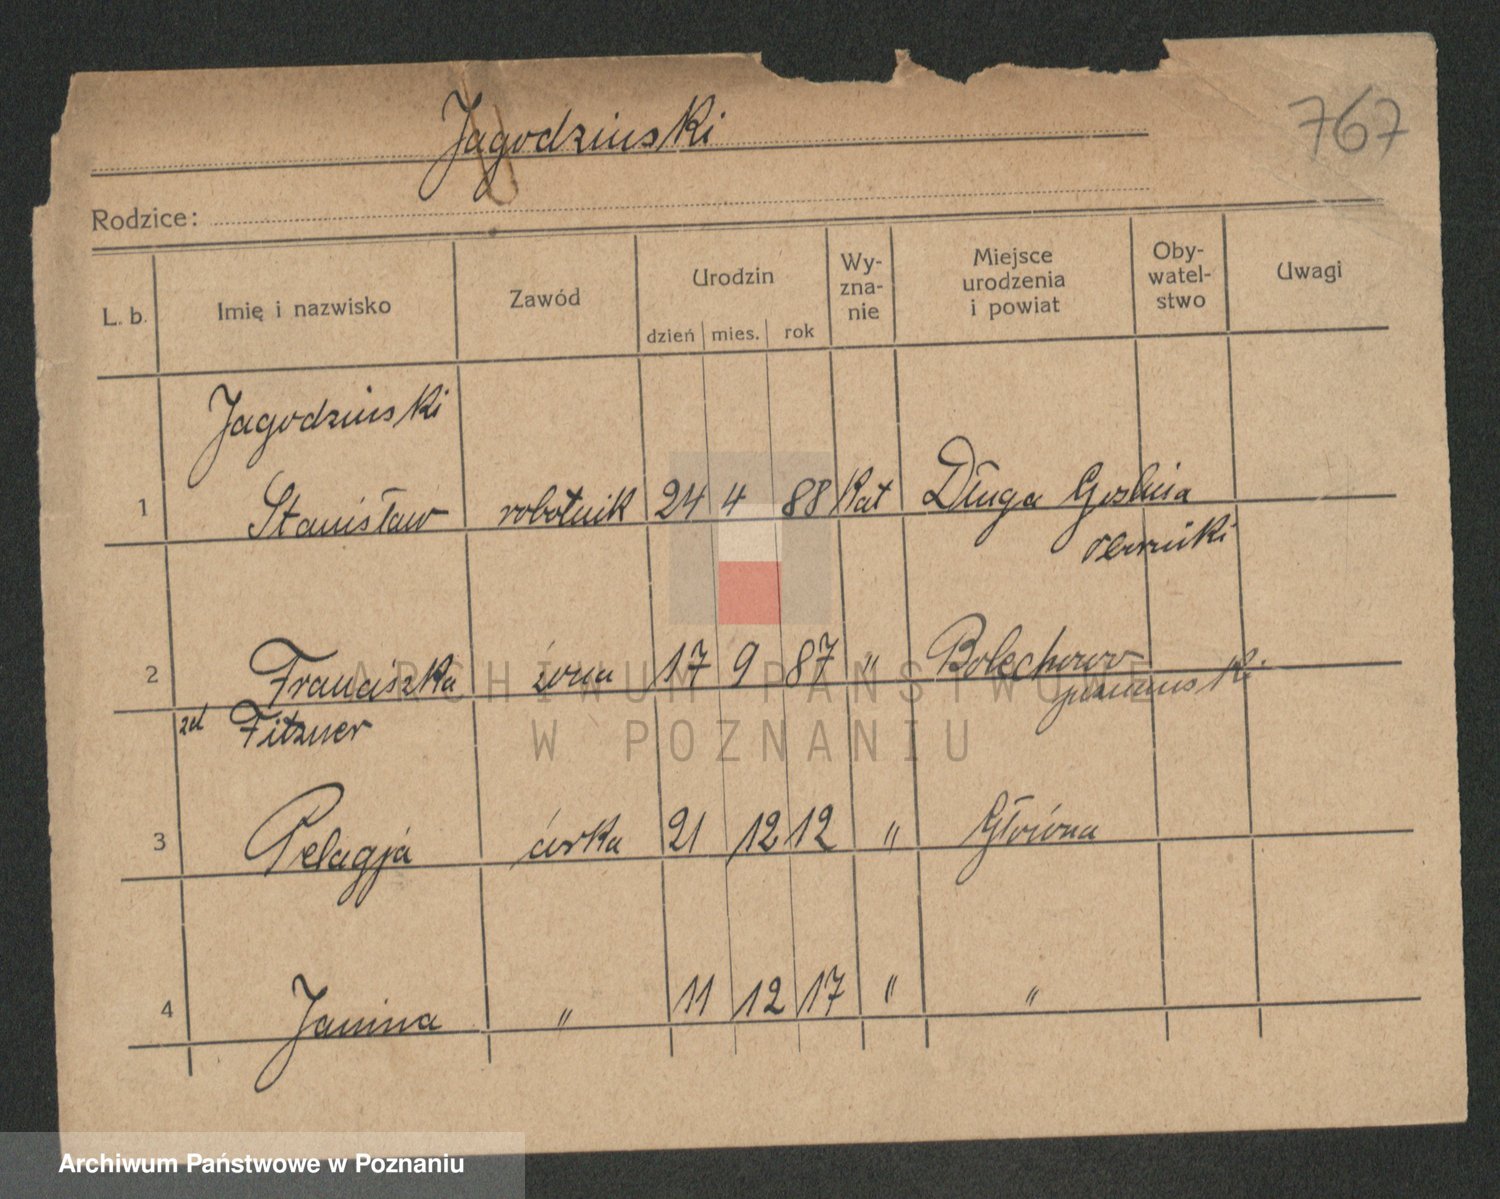 Jagodzinski
767
Rodzice:
L. b. Imię i nazwisko Zawód Urodzin dzień mies. rok Wy-zna-nie Miejsce urodzenia i powiat Oby-watel-stwo Uwagi
Jagodzinski
1 Stanisław robotnik 24 4 88 Kat Długa Goslina
oborniki
2 Franciszka żona 17 9 87 " Bolechowo
zd Fitzner poznanski
3 Pelagja córka 21 12 12 " Główna
4 Janina " 11 12 17 " "
ARCHIWUM PAŃSTWOWE
W POZNANIU
Archiwum Państwowe w Poznaniu